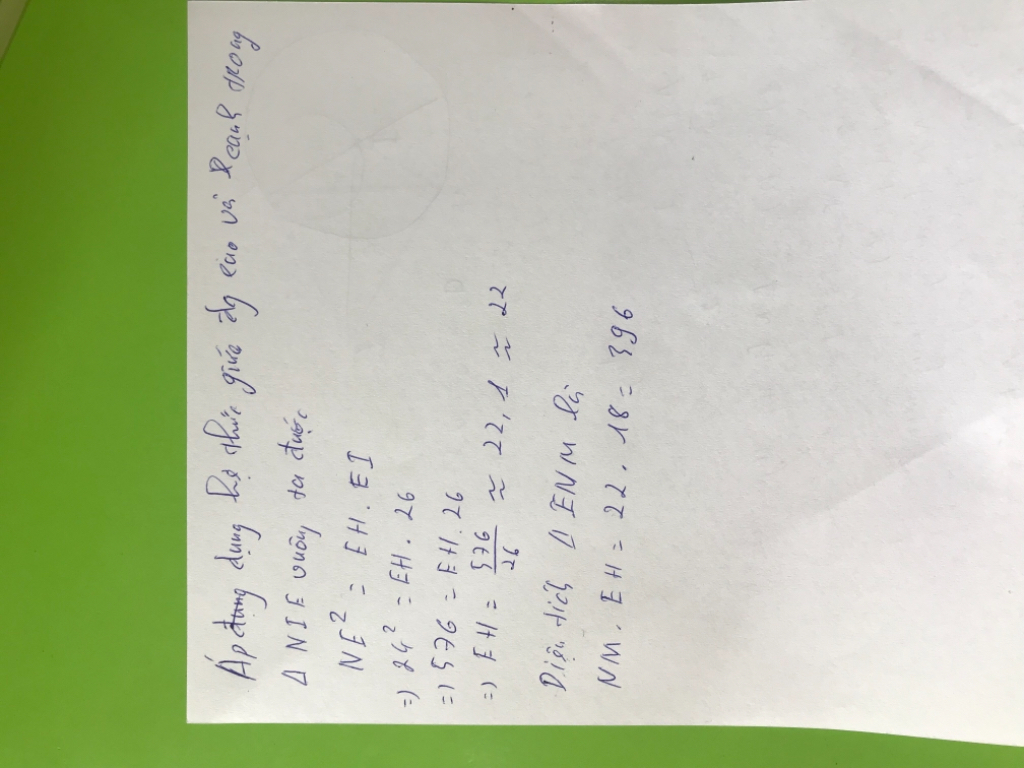 Áp dụng dụng hệ thức giữa đg cao và cạnh trong
Δ NIE vuông ta được
NE² = EH. EI
=) 24² = EH. 26
=) 576 = EH. 26
=) EH = 576/26 ≈ 22,1 ≈ 22
Diện tích Δ ENM là
NM. EH = 22. 18 = 396